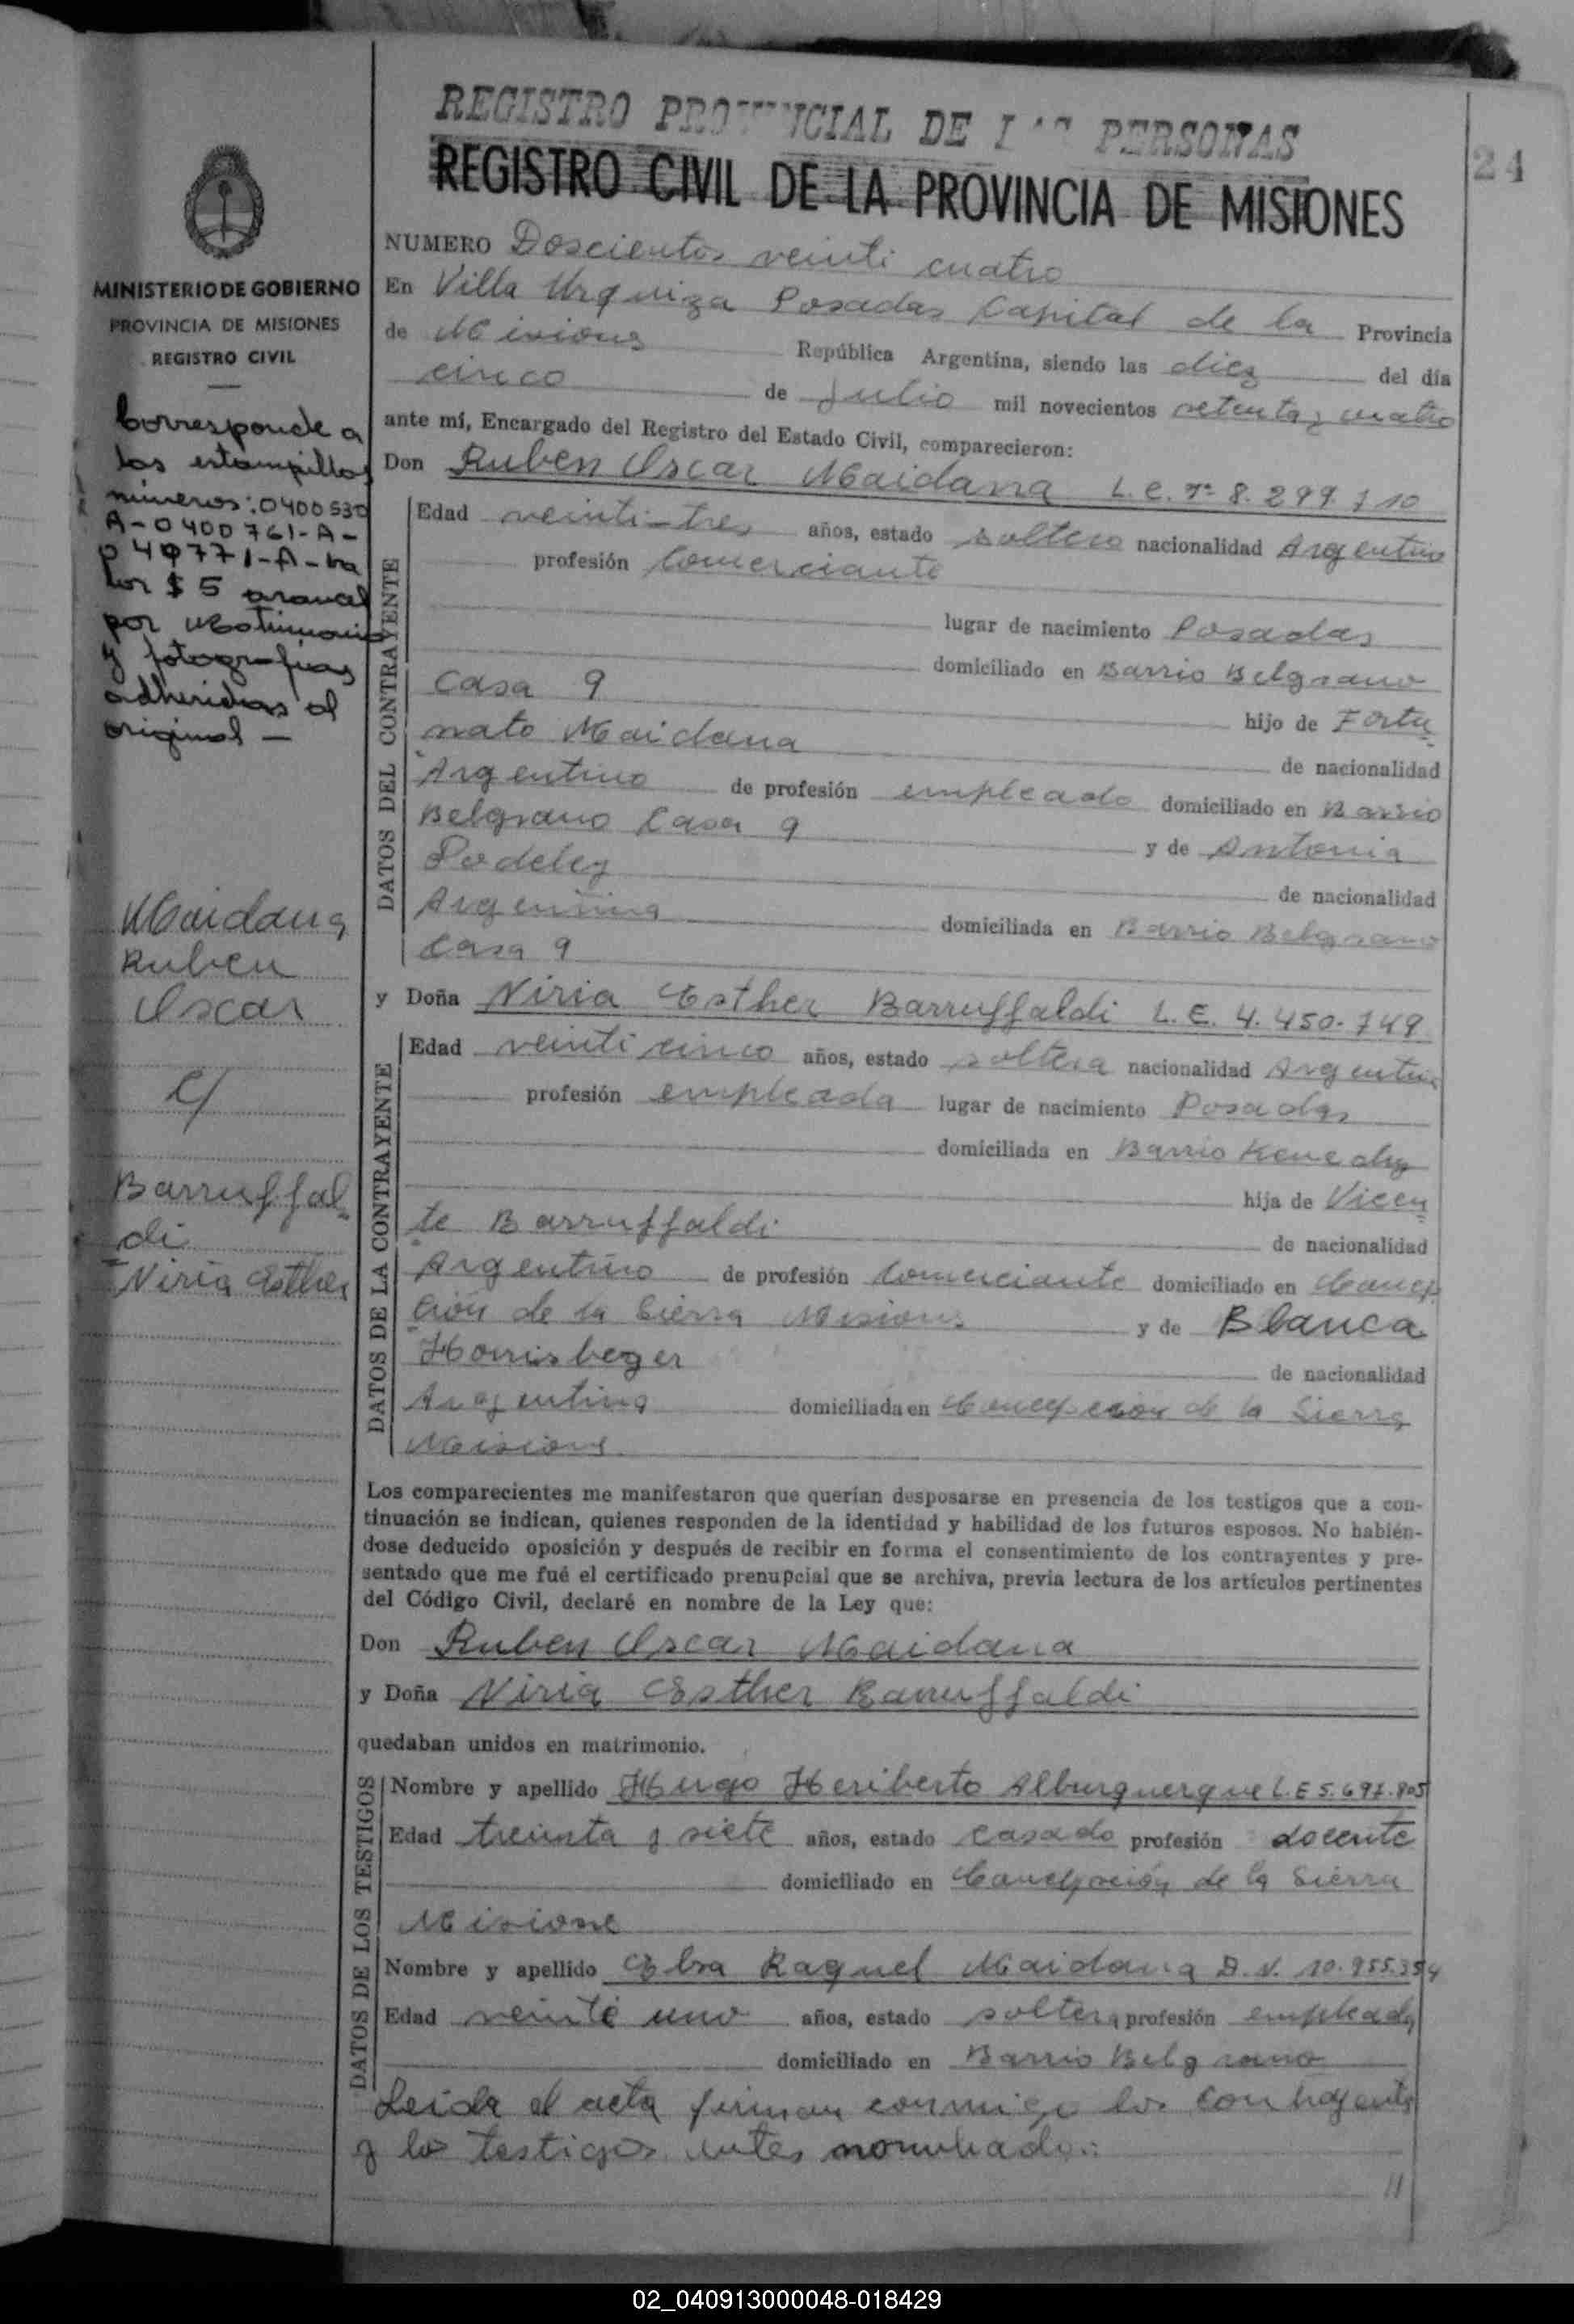 REGISTRO PROVINCIAL DE LAS PERSONAS
REGISTRO CIVIL DE LA PROVINCIA DE MISIONES
24
MINISTERIO DE GOBIERNO
PROVINCIA DE MISIONES
REGISTRO CIVIL
Corresponde a
las estampillas
números: 0400530
A-0400761-A-
por $ 5 arancel
por Matrimonio
y fotografias
adheridas al
original -
Maidana
Ruben
Oscar
c/
Barruffal
di
Niria Esther
NUMERO Doscientos veinti cuatro
En Villa Urquiza Posadas Capital de la Provincia
de Misiones República Argentina, siendo las diez del día
cinco de Julio mil novecientos setenta y cuatro
ante mí, Encargado del Registro del Estado Civil, comparecieron:
Don Ruben Oscar Maidana L.E. Nº 8.299.710
DATOS DEL CONTRAYENTE
Edad veinti-tres años, estado soltero nacionalidad Argentino
profesión Comerciante
lugar de nacimiento Posadas
domiciliado en Barrio Belgrano
Casa 9
hijo de Fortu
nato Maidana
de nacionalidad
Argentino de profesión empleado domiciliado en Barrio
Belgrano Casa 9
y de Antonia
Podeley
de nacionalidad
Argentina domiciliada en Barrio Belgrano
Casa 9
y Doña Niria Esther Barruffaldi L.E. 4.450.749
DATOS DE LA CONTRAYENTE
Edad veinti cinco años, estado soltera nacionalidad Argentina
profesión empleada lugar de nacimiento Posadas
domiciliada en Barrio Kenedy
hija de Vicen
te Barruffaldi
de nacionalidad
Argentino de profesión Comerciante domiciliado en Concep
ción de la Sierra Misiones y de Blanca
Horrisbeger
de nacionalidad
Argentina domiciliada en Concepción de la Sierra
Misiones
Los comparecientes me manifestaron que querían desposarse en presencia de los testigos que a con-
tinuación se indican, quienes responden de la identidad y habilidad de los futuros esposos. No habién-
dose deducido oposición y después de recibir en forma el consentimiento de los contrayentes y pre-
sentado que me fué el certificado prenupcial que se archiva, previa lectura de los artículos pertinentes
del Código Civil, declaré en nombre de la Ley que:
Don Ruben Oscar Maidana
y Doña Niria Esther Barruffaldi
quedaban unidos en matrimonio.
DATOS DE LOS TESTIGOS
Nombre y apellido Hugo Heriberto Alburquerque L.E 5.697.805
Edad treinta y siete años, estado casado profesión docente
domiciliado en Concepción de la Sierra
Misione
Nombre y apellido Elsa Raquel Maidana D.N. 10.955.354
Edad veinte uno años, estado soltera profesión empleada
domiciliado en Barrio Belgrano
Leida el acta firman conmigo los contrayentes
y los testigos antes nombrados:
//
02_040913000048-018429